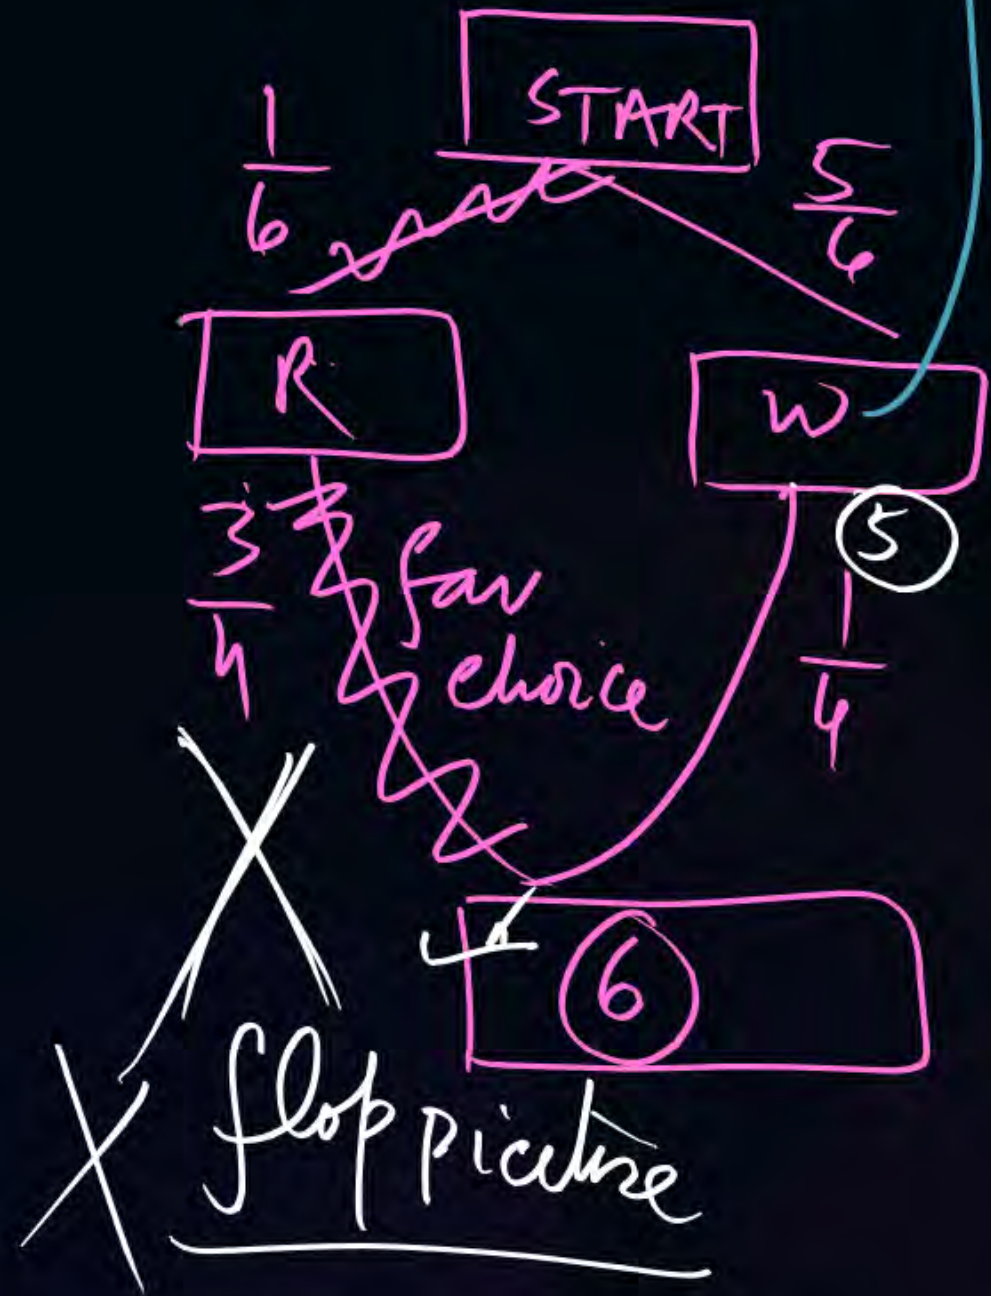 START
1/6
5/6
R
W
3/4
5
1/4
fav
choice
6
flop picture